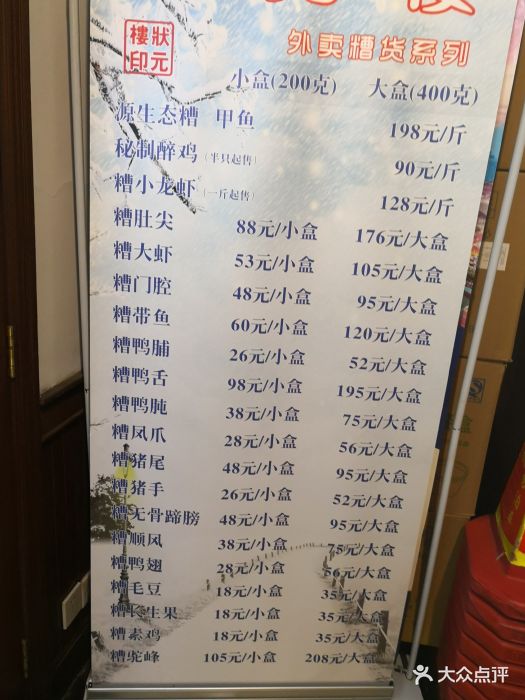 狀元樓印
外卖糟货系列
小盒(200克) 大盒(400克)
源生态糟 甲鱼 198元/斤
秘制醉鸡(半只起售) 90元/斤
糟小龙虾(一斤起售) 128元/斤
糟肚尖 88元/小盒 176元/大盒
糟大虾 53元/小盒 105元/大盒
糟门腔 48元/小盒 95元/大盒
糟带鱼 60元/小盒 120元/大盒
糟鸭脯 26元/小盒 52元/大盒
糟鸭舌 98元/小盒 195元/大盒
糟鸭肫 38元/小盒 75元/大盒
糟凤爪 28元/小盒 56元/大盒
糟猪尾 48元/小盒 95元/大盒
糟猪手 26元/小盒 52元/大盒
糟无骨蹄膀 48元/小盒 95元/大盒
糟顺风 38元/小盒 75元/大盒
糟鸭翅 28元/小盒 56元/大盒
糟毛豆 18元/小盒 35元/大盒
糟长生果 18元/小盒 35元/大盒
糟素鸡 18元/小盒 35元/大盒
糟驼峰 105元/小盒 208元/大盒
大众点评